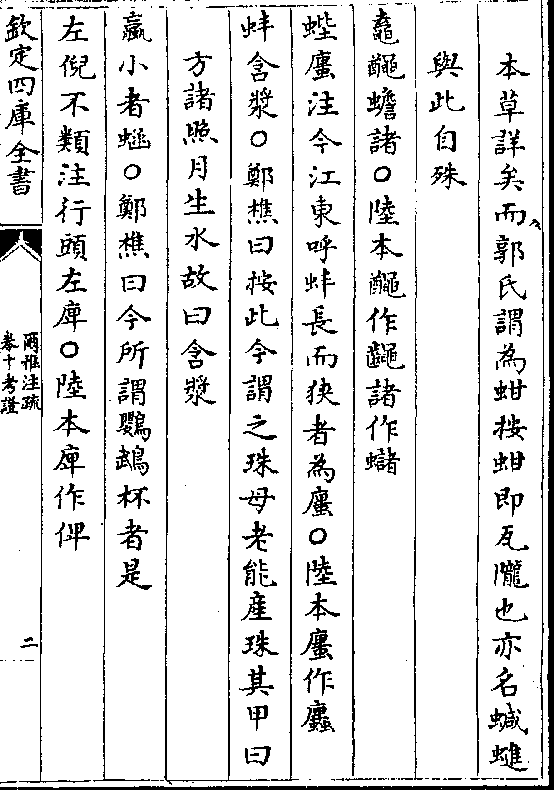 本草詳矣而郭氏謂為蚶按蚶即瓦隴也亦名蝛䗯
與此自殊
鼁𪓰蟾諸○陸本𪓰作鼀諸作蠩
蜌螷注今江東呼蚌長而狹者為螷○陸本螷作蠯
蚌含漿○鄭樵曰按此今謂之珠母老能產珠其甲曰
方諸照月生水故曰含漿
蠃小者蜬○鄭樵曰今所謂鸚鵡杯者是
左倪不類注行頭左庳○陸本庳作俾
欽定四庫全書
爾雅注疏
卷十考證
二